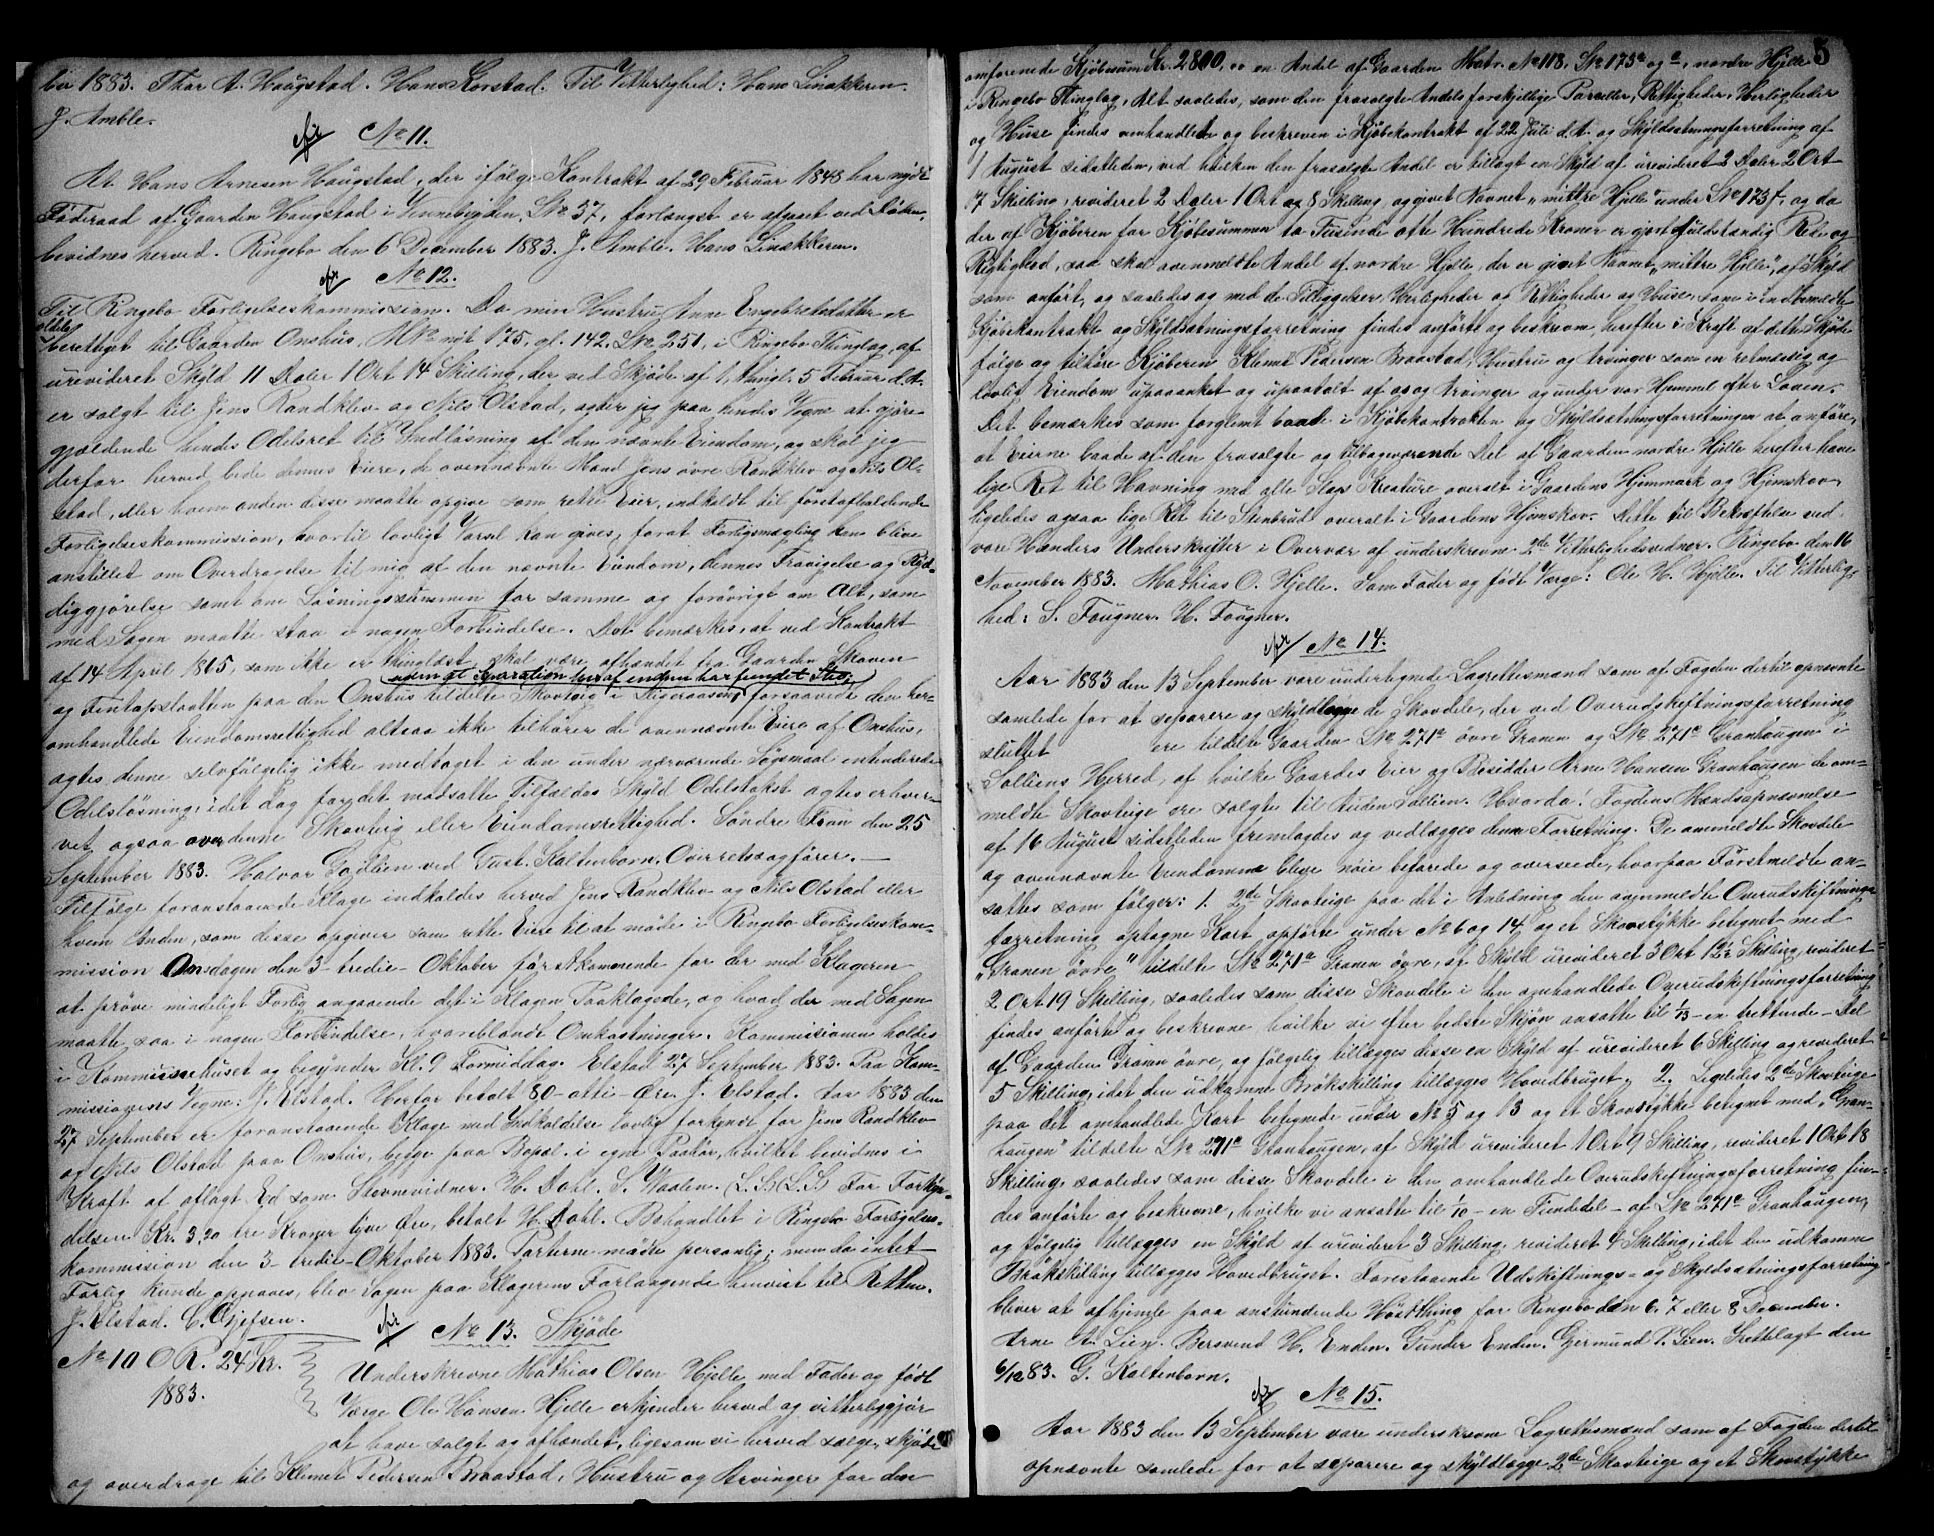 ber 1883. Thor A. Haugstad. Hans Korstad. Til Vitterlighed: Hans Linakkeren.
J. Amble.
No 11.
At Hans Arnesen Haugstad, der ifølge Kontrakt af 29 Februar 1848 har nydt
Føderaad af Gaarden Haugstad i Vennebygden, L No 37, forlængst er afgaaet ved Døden,
bevidnes herved. Ringebo den 6 December 1883. J. Amble. Hans Linakkeren.
No 12.
Til Ringebo Forligelseskommission. Da min Hustru Anne Engebretsdatter er
odels
berettiget til Gaarden Onshus, M No nyt 175, gl. 142, L No 251, i Ringebo Thinglag, af
urevideret Skyld 11 Daler 1 Ort 14 Skilling, der ved Skjøde af 1, thingl. 5 Februar d. A.
er solgt til Jens Randklev og Nils Olstad, agter jeg paa hendes Vegne at gjøre
gjældende hendes Odelsret til Indløsning af den nævnte Eiendom, og skal jeg
derfor herved bede dennes Eiere, de ovennævnte Mænd Jens øvre Randklev og Nils Ol-
stad, eller hvem anden disse maatte opgive som rette Eier, indkaldt til førstafholdende
Forligelseskommission, hvortil lovligt Varsel kan gives, forat Forligsmægling kan blive
anstillet om Overdragelse til mig af den nævnte Eiendom, dennes Fravigelse og Ryd-
diggjørelse samt om Løsningssummen for samme og forøvrigt om Alt, som
med Sagen maatte staa i nogen Forbindelse. Det bemærkes, at ved Kontrakt
af 14 April 1865, som ikke er thinglæst, skal være afhændet fra Gaarden Skoven
uden at Separation heraf endnu har fundet Sted
og Fentapslaatten paa den Onshus tildelte Skovteig i forsaavidt den her-
omhandlede Eiendomsrettighed altsaa ikke tilhører de ovennævnte Eiere af Onshus,
agtes denne selvfølgelig ikke medtaget i den under nærværende Søgsmaal intenderede
Odelsløsning, idet dog for det modsatte Tilfældes Skyld Odelstakst agtes erhver-
vet ogsaa over denne Skovteig eller Eiendomsrettighed. Søndre Fron den 25
September 1883. Halvor Godlien ved Gust. Kaltenborn, Overretssagfører.
Tilfølge foranstaaende Klage indkaldes herved Jens Randklev og Nils Olstad eller
hvem Anden, som disse opgiver som rette Eiere til at møde i Ringebo Forligelseskom-
mission Onsdagen den 3- tredie- Oktober førstkommende for der med Klageren
at prøve mindeligt Forlig angaaende det i Klagen Paaklagede, og hvad der med Sagen
maatte staa i nogen Forbindelse, hvoriblandt Omkostninger. Kommissionen holdes
i Kommissehuset og begynder Kl. 9 Formiddag. Elstad 27 September 1883. Paa Kom-
missionens Vegne: J. Elstad. Herfor betalt 80- otti- Øre. J. Elstad. Aar 1883 den
27 September er foranstaaende Klage med Indkaldelse lovlig forkyndt for Jens Randklev
og Nils Olstad paa Onshus, begge paa Bopæl i egne Paahør, hvilket bevidnes i
Kraft af aflagt Ed som Stevnevidner. H. Dahl. S. Waalen. (L.S.) (L.S.) For Forkyn-
delsen Kr. 3,20 tre Kroner tyve Øre, betalt H. Dahl. Behandlet i Ringebo Forligelses-
kommission den 3- tredie- Oktober 1883. Parterne mødte personlig; men da intet
Forlig kunde opnaaes, blev Sagen paa Klagerens Forlangende henvist til Retten.
J. Elstad. C.
No 13. Skjøde
No 10 O R. 24 Kr.
1883.
Underskrevne Mathias Olsen Hjelle med Fader og født
Værge Ole Hansen Hjelle erkjender herved og vitterliggjør
at have solgt og afhændet, ligesom vi herved sælge, skjøde
og overdrage til Klemet Pedersen Braastad, Hustru og Arvinger for den
5
omforenede Kjøbesum Kr. 2800,00 en Andel af Gaarden Matr. No 118, L No 173 a og , nordre Hjelle
i Ringebo Thinglag, Alt saaledes, som den frasolgte Andels forskjellige Parceller, Rettigheder, Herligheder
og Huse findes omhandlet og beskreven i Kjøbekontrakt af 22 Juli d. A. og Skyldsætningsforretning af
1 August sidstleden, ved hvilken den frasolgte Andel er tillagt en Skyld af urevideret 2 Daler 2 Ort
17 Skilling, revideret 2 Daler 1 Ort og 8 Skilling, og givet Navnet "mittre Hjelle" under L No 173 f, og da
der af Kjøberen for Kjøbesummen to Tusinde otte Hundrede Kroner er gjort fuldstændig Rede og
Rigtighed, saa skal ovenmeldte Andel af nordre Hjelle, der er givet Navnet "mittre Hjelle", af Skyld
som anført, og saaledes og med de Tilliggelser, Herligheder og Rettigheder og Huse, som i indbemeldte
Kjøbekontrakt og Skyldsætningsforretning findes anførte og beskreven, herefter i Kraft af dette Skjøde
følge og tilhøre Kjøberen Klemet Pedersen Braastad, Hustru og Arvinger som en retmæssig og
lovlig Eiendom upaaanket og upaatalt af os og Arvinger og under vor Hjemmel efter Loven.
Det bemærkes som forglemt baade i Kjøbekontrakten og Skyldsætningsforretningen at anføre,
at Eierne baade af den frasolgte og tilbageværende Del af Gaarden nordre Hjelle herefter have
lige Ret til Havning med alle Slags Kreature overalt i Gaardens Hjemmark og Hjemskov,
ligeledes ogsaa lige Ret til Stenbrud overalt i Gaardens Hjemskov. Dette til Bekræftelse ved
vore Hænders Underskrifter i Overvær af underskrevne 2de Vitterlighedsvidner. Ringebo den 16
November 1883. Mathias O. Hjelle. Som Fader og født Værge: Ole H. Hjelle. Til Vitterlig-
hed: S. Fougner. H. Fougner.
No 14.
Aar 1883 den 13 September vare undertegnede Lagrettesmænd som af Fogden dertil opnævnte
samlede for at separere og skyldlægge de Skovdele, der ved Overudskiftningsforretning
sluttet ere tildelte Gaarden L No 271 a øvre Granen og L No 271 c Granhaugen i
Solliens Herred, af hvilke Gaardes Eier og Besidder Arne Hansen Granhaugen de om-
meldte Skovteige ere solgte til Auden Sollien. Hvorda! Fogdens Mændsopnævnelse
af 16 August sidstleden fremlagdes og vedlægges denne Forretning. De ommeldte Skovdele
og ovennævnte Eiendomme bleve nøie befarede og overseede, hvorpaa Førstmeldte an-
sattes som følger: 1. 2de Skovteige paa det i Anledning den ovenmeldte Overudskiftnings
forretning optagne Kort opførte under No 6 og 14 og et Skovstykke betegnet med
"Granen øvre" tildelte L No 271 a Granen øvre, af Skyld urevideret 3 Ort 12½ Skilling, revideret
2 Ort 19 Skilling, saaledes som disse Skovdele i den omhandlede Overudskiftningsforretning
findes anførte og beskrevne, hvilke vi efter bedste Skjøn ansatte til 1/13- en trettende- Del
af Gaarden Granen øvre, og følgelig tillægges disse en Skyld af urevideret 6 Skilling og revideret
5 Skilling, idet den udkomne Brøkskilling tillægges Hovedbruget. 2. Ligeledes 2de Skovteige
paa det omhandlede Kort betegnede under No 5 og 13 og et Skovstykke betegnet med "Gran-
haugen" tildelte L No 271 c Granhaugen, af Skyld urevideret 1 Ort 9 Skilling, revideret 1 Ort 18
Skilling, saaledes som disse Skovdele i den omhandlede Overudskiftningsforretning fin-
des anførte og beskrevne, hvilke vi ansatte til 1/10- en Tiendedel- af L No 271 c Granhaugen,
og følgelig tillægges en Skyld af urevideret 3 Skilling, revideret 4 Skilling, idet den udkomne
Brøkskilling tillægges Hovedbruget. Forestaaende Udskiftnings- og Skyldsætningsforretning
bliver at afhjemle paa anstundende Høstthing for Ringebo den 6, 7 eller 8 December.
Arne A. Lien. Bersvend H. Enden. Gunder Enden. Gjermund P. Lien. Frettelagt den
6/12 83. G. Kaltenborn.
No 15.
Aar 1883 den 13 September vare underskrevne Lagrettesmænd som af Fogden dertil
opnævnte samlede for at separere og skyldlægge 2de Skovteige og et Skovstykke